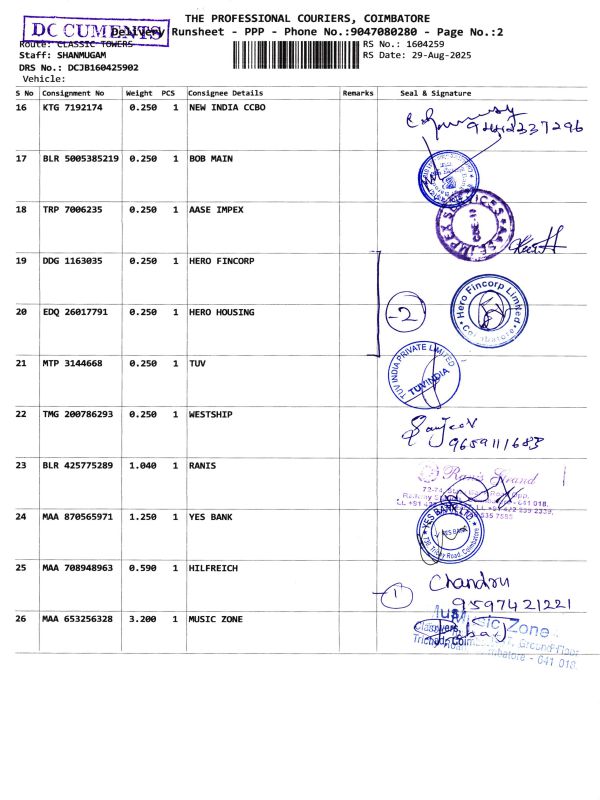 THE PROFESSIONAL COURIERS, COIMBATORE
DOCUMENTS
Delivery Runsheet - PPP - Phone No.:9047080280 - Page No.:2
Route: CLASSIC TOWERS
RS No.: 1604259
Staff: SHANMUGAM
RS Date: 29-Aug-2025
DRS No.: DCJB160425902
Vehicle:
S No Consignment No Weight PCS Consignee Details Remarks Seal & Signature
16 KTG 7192174 0.250 1 NEW INDIA CCBO
17 BLR 5005385219 0.250 1 BOB MAIN
18 TRP 7006235 0.250 1 AASE IMPEX
AASE IMPEX SERVICES
CBE-12
19 DDG 1163035 0.250 1 HERO FINCORP
20 EDQ 26017791 0.250 1 HERO HOUSING
-2
Hero Fincorp Limited
Coimbatore
21 MTP 3144668 0.250 1 TUV
TUV INDIA PRIVATE LIMITED
TUVINDIA
22 TMG 200786293 0.250 1 WESTSHIP
Sanjeev
9659111683
23 BLR 425775289 1.040 1 RANIS
Ranis Grand
24 MAA 870565971 1.250 1 YES BANK
YES BANK LTD
YES BANK
Trichy Road, Coimbatore
25 MAA 708948963 0.590 1 HILFREICH
-1
Chandru
9597421221
26 MAA 653256328 3.200 1 MUSIC ZONE
Music Zone
Ground Floor
641 018.